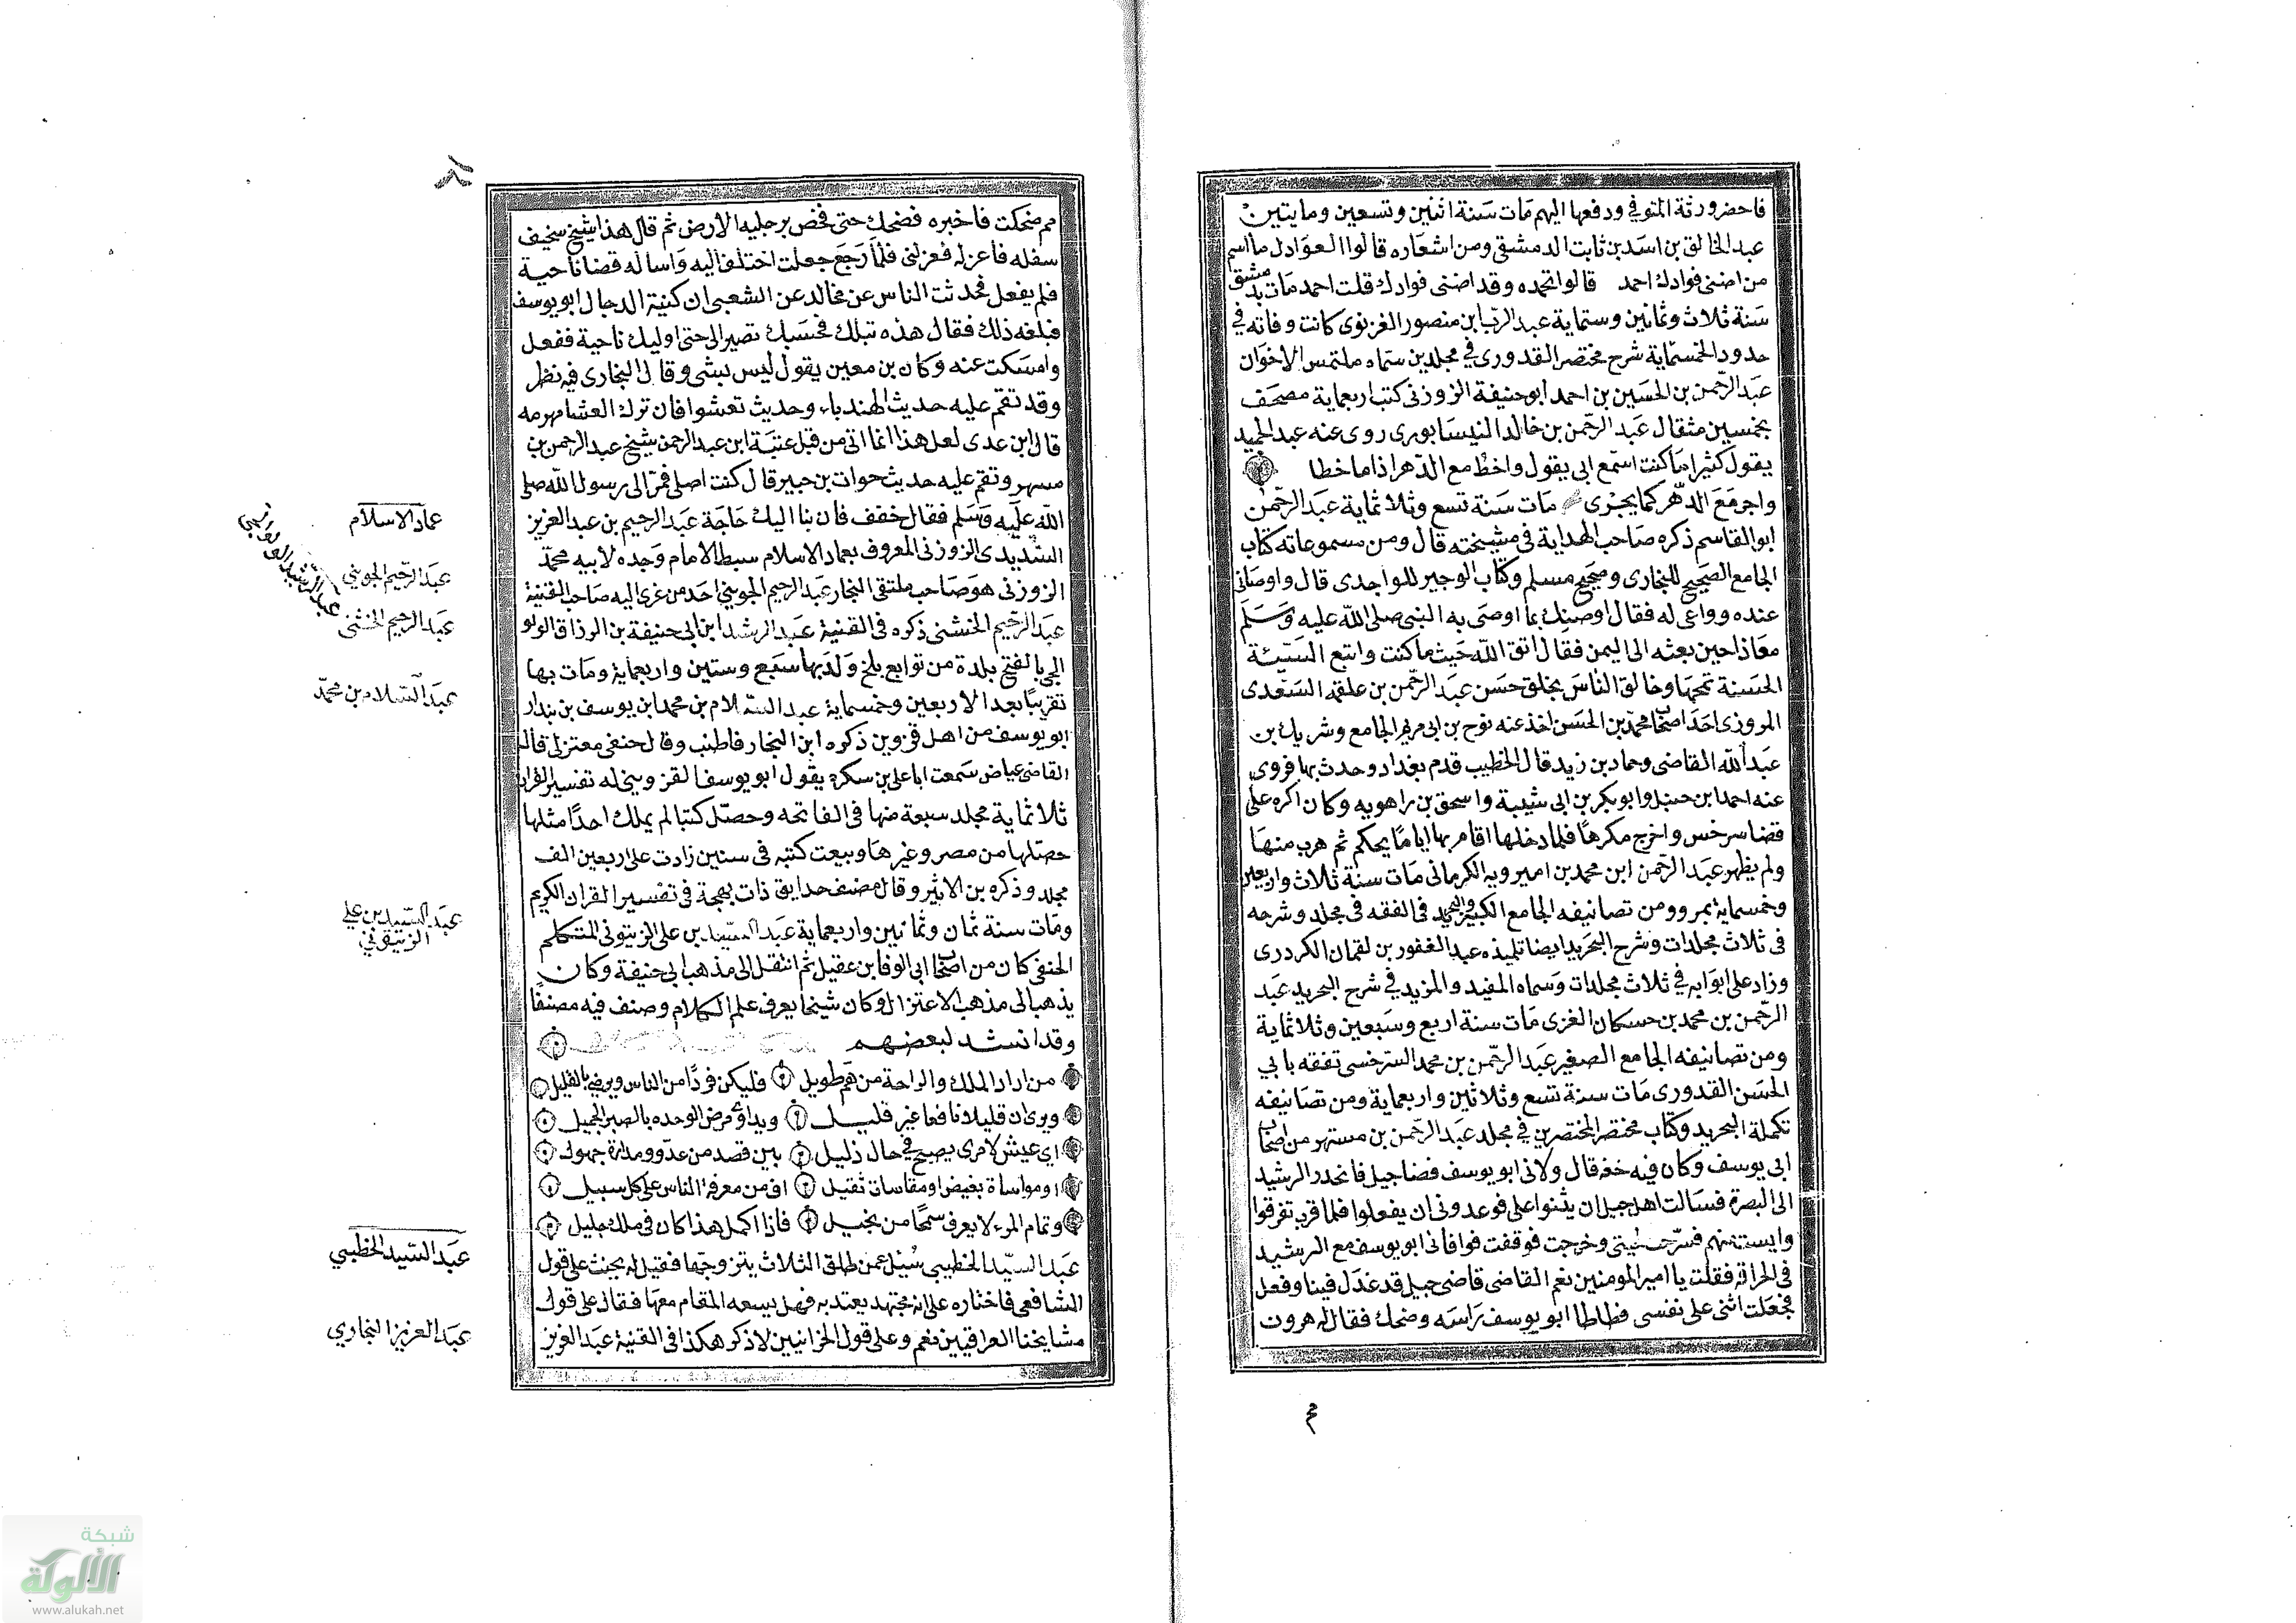 فاحضر ورثة المتوفي ودفعها اليهم مات سنة اثنين وتسعين ومايتين
عبد الخالق بن اسد بن ثابت الدمشقي ومن اشعاره قالوا العواذل ما اسم
من اضنى فوادك احمد قالوا اتحمده وقد اضنى فوادك قلت احمد مات بدمشق
سنة ثلاث وثمانين وستماية عبد الرب ابن منصور الغزنوى كانت وفاته في
حدود الخمسماية شرح مختصر القدورى في مجلدين سماه ملتمس الاخوان
عبد الرحمن بن الحسين بن احمد ابو حنيفة الزوزنى كتب اربعماية مصحف
بخمسين مثقال عبد الرحمن بن خالد النيسابورى روى عنه عبد الحميد
يقول كثيرا ما كنت اسمع ابي يقول واخط مع الدهر اذا ما خطا
واجر مع الدهر كما يجرى مات سنة تسع وثلاثماية عبد الرحمن
ابو القاسم ذكره صاحب الهداية فى مشيخته قال ومن مسموعاته كتاب
الجامع الصحيح للبخارى وصحيح مسلم وكتاب الوجيز للواحدى قال واوصانى
عنده وواعى له فقال اوصيك بما اوصى به النبي صلى الله عليه وسلم
معاذا حين بعثه الى اليمن فقال اتق الله حيث ما كنت واتبع السيئة
الحسنة تمحها وخالق الناس بخلق حسن عبد الرحمن بن علقمه السعدى
المروزى احد اصحاب محمد بن الحسن اخذ عنه نوح بن ابى مريم الجامع وشريك بن
عبد الله القاضى وحماد بن زيد قال الخطيب قدم بغداد وحدث بها فروى
عنه احمد ابن حنبل وابو بكر بن ابي شيبة واسحق بن راهويه وكان اكره على
قضا سرخس واخرج مكرها فلما دخلها اقام بها اياما يحكم ثم هرب منها
ولم يظهر عبد الرحمن ابن محمد بن اميرويه الكرمانى مات سنة ثلاث واربعين
وخمسماية بمرو ومن تصانيفه الجامع الكبير والتجريد فى الفقه فى مجلد وشرحه
فى ثلاث مجلدات وشرح التجريد ايضا تلميذه عبد الغفور بن لقمان الكردرى
وزاد على ابوابه في ثلاث مجلدات وسماه المفيد والمزيد في شرح التجريد عبد
الرحمن بن محمد بن حسكان الغزى مات سنة اربع وسبعين وثلاثماية
ومن تصانيفه الجامع الصغير عبد الرحمن بن محمد السرخسى تفقه بابي
الحسن القدورى مات سنة تسع وثلاثين واربعماية ومن تصانيفه
تكملة التجريد وكتاب مختصر المختصرين في مجلد عبد الرحمن بن مسهر من اصحاب
ابى يوسف وكان فيه خفة قال ولانى ابو يوسف قضا جبل فانحدر الرشيد
الى البصرة فسالت اهل جبل ان يثنوا على فوعدونى ان يفعلوا فلما قرب تفرقوا
وايست منهم فسرحت لحيتى وخرجت فوقفت فوافانى ابو يوسف مع الرشيد
فى الحراقة فقلت يا امير المومنين نعم القاضى قاضى جبل قد عدل فينا وفعل
فجعلت اثنى على نفسى فطاطا ابو يوسف راسه وضحك فقال له هرون
مم ضحكت فاخبره فضحك حتى فحص برجليه الارض ثم قال هذا شيخ سخيف
سفله فاعزله فعزلنى فلما رجع جعلت اختلف اليه واساله قضا ناحية
فلم يفعل فحدثت الناس عن مجالد عن الشعبى ان كنية الدجال ابو يوسف
فبلغه ذلك فقال هذه بتلك فحسبك تصير الى حتى اوليك ناحية ففعل
وامسكت عنه وكان بن معين يقول ليس بشى وقال البخارى فيه نظر
وقد نقم عليه حديث الهندباء وحديث تعشوا فان ترك العشا مهرمه
قال ابن عدى لعل هذا انما اتى من قبل عنبسة ابن عبد الرحمن شيخ عبد الرحمن بن
مسهر ونقم عليه حديث خوات بن جبير قال كنت اصلى فمر الى رسول الله صلى
الله عليه وسلم فقال خفف فان بنا اليك حاجة عبد الرحيم بن عبد العزيز
السديدى الزوزنى المعروف بعماد الاسلام سبط الامام وجده لابيه محمد
الزوزنى هو صاحب ملتقى البحار عبد الرحيم الجوينى احد من عزى اليه صاحب القنية
عبد الرحيم الخشنى ذكره فى القنية عبد الرشيد ابن ابى حنيفة بن الرزاق الولو
الجى بالفتح بلدة من توابع بلخ ولد بها سبع وستين واربعماية ومات بها
تقريبا بعد الاربعين وخمسماية عبد السلام بن محمد ابن يوسف بن بندار
ابو يوسف من اهل قزوين ذكره ابن النجار فاطنب وقال حنفى معتزلى قال
القاضى عياض سمعت ابا على بن سكرة يقول ابو يوسف القزوينى له تفسير القران
ثلاثماية مجلد سبعة منها فى الفاتحه وحصل كتبا لم يملك احدا مثلها
حصلها من مصر وغيرها وبيعت كتبه فى سنين زادت على اربعين الف
مجلد وذكره بن الاثير وقال مصنف حدايق ذات بهجة فى تفسير القران الكريم
ومات سنة ثمان وثمانين واربعماية عبد السيد بن على الزيتونى المتكلم
الحنفى كان من اصحاب ابى الوفا بن عقيل ثم انتقل الى مذهب ابى حنيفة وكان
يذهب الى مذهب الاعتزال وكان شيخا يعرف علم الكلام وصنف فيه مصنفا
وقد انشد لبعضهم
من اراد الملك والراحة من هم طويل فليكن فردا من الناس ويرضى بالقليل
ويرى ان قليلا نافعا غير قليل ويداوى مرض الوحده بالصبر الجميل
اى عيش لامرى يصبح في حال ذليل بين قصد من عدو ومداراة جهول
او مواساة بغيض او مقاساة ثقيل اف من معرفة الناس على كل سبيل
وتمام المرء لا يعرف سمحا من بخيل فاذا اكمل هذا كان فى ملك جليل
عبد السيد الخطيبى سئل عمن طلق الثلاث يتزوجها فقيل له يحنث على قول
الشافعى فاختاره على انه مجتهد يعتد به فهل يسعه المقام معها فقال على قول
مشايخنا العراقيين نعم وعلى قول الخراسانيين لا ذكر هكذا فى القنية عبد العزيز
عماد الاسلام
عبد الرحيم الجوينى
عبد الرشيد الولوالجى
عبد الرحيم الخشنى
عبد السلام بن محمد
عبد السيد بن على
الزيتوني
عبد السيد الخطيبي
عبد العزيز البخاري
شبكة
الألوكة
www.alukah.net